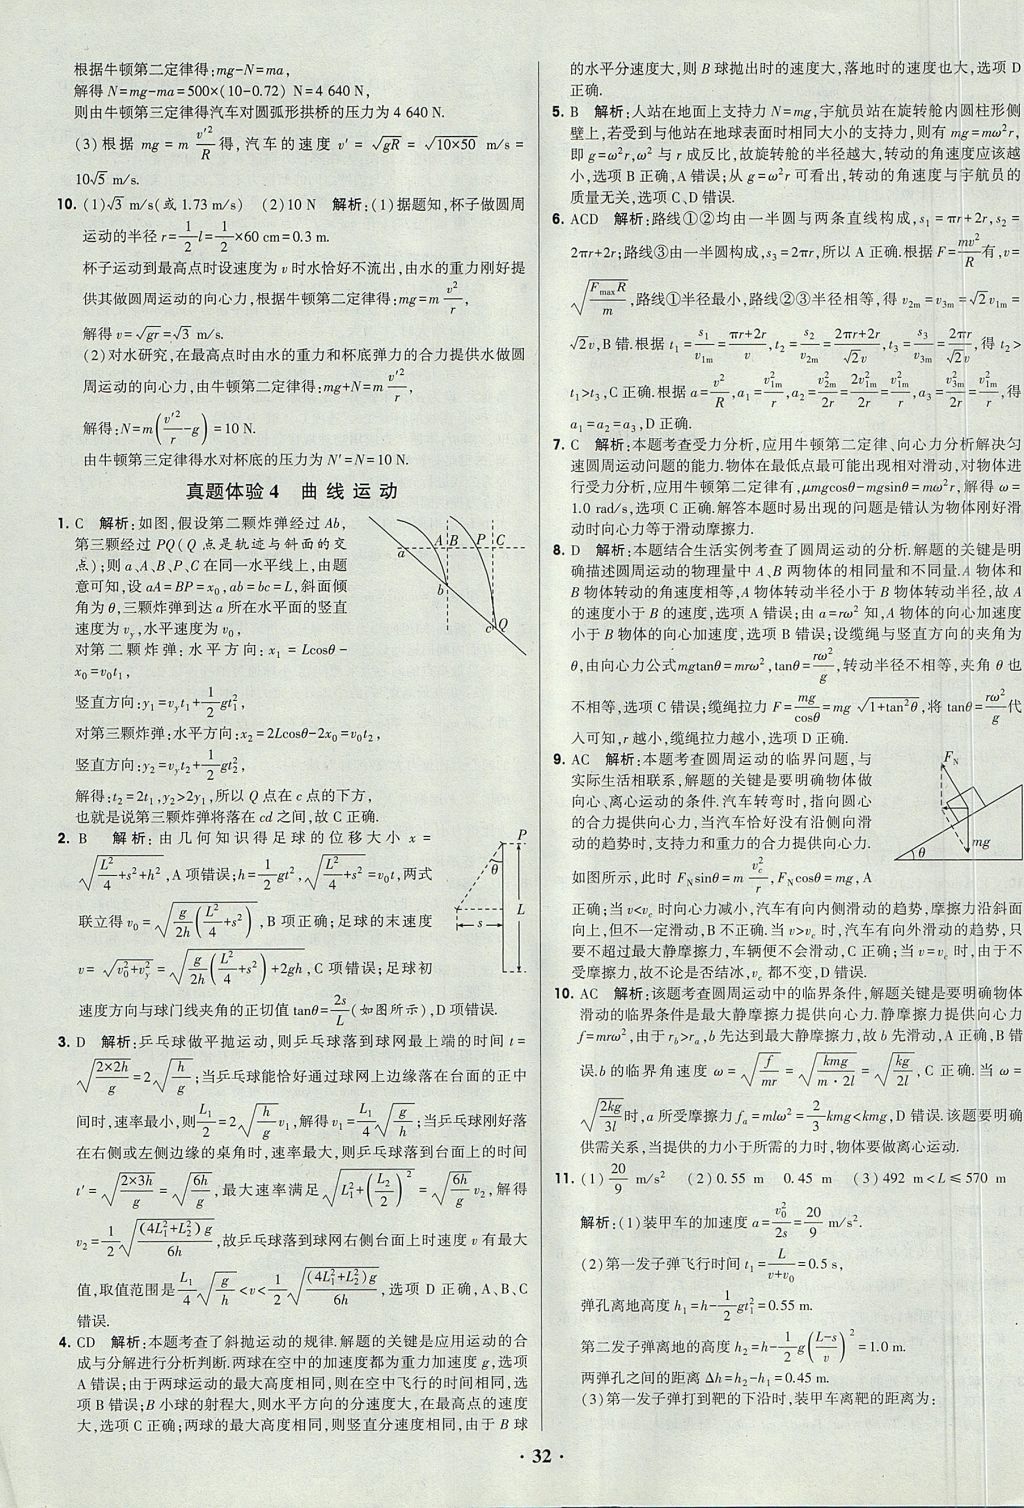 根据牛顿第二定律得:mg-N=ma,
解得 N=mg-ma=500×(10-0.72) N=4 640 N.
则由牛顿第三定律得汽车对圆弧形拱桥的压力为 4 640 N.
(3)根据 mg=m v′²/R 得,汽车的速度 v′=√(gR)=√(10×50) m/s=
10√5 m/s.
10. (1)√3 m/s(或 1.73 m/s) (2)10 N 解析:(1)据题知,杯子做圆周
运动的半径 r=1/2 l=1/2×60 cm=0.3 m.
杯子运动到最高点时设速度为 v 时水恰好不流出,由水的重力刚好提
供其做圆周运动的向心力,根据牛顿第二定律得:mg=m v²/r,
解得 v=√(gr)=√3 m/s.
(2)对水研究,在最高点时由水的重力和杯底弹力的合力提供水做圆
周运动的向心力,由牛顿第二定律得:mg+N=m v′²/r,
解得:N=m(v′²/r-g)=10 N.
由牛顿第三定律得水对杯底的压力为 N′=N=10 N.
真题体验 4 曲线运动
1. C 解析:如图,假设第二颗炸弹经过 Ab,
第三颗经过 PQ(Q 点是轨迹与斜面的交
点);则 a、A、B、P、C 在同一水平线上,由题
意可知,设 aA=BP=x₀,ab=bc=L,斜面倾
角为 θ,三颗炸弹到达 a 所在水平面的竖直
速度为 v_y,水平速度为 v₀,
对第二颗炸弹:水平方向:x₁=Lcosθ-
x₀=v₀t₁,
竖直方向:y₁=v_yt₁+1/2 gt₁²,
对第三颗炸弹:水平方向:x₂=2Lcosθ-2x₀=v₀t₂,
竖直方向:y₂=v_yt₂+1/2 gt₂²,
解得:t₂=2t₁,y₂>2y₁,所以 Q 点在 c 点的下方,
也就是说第三颗炸弹将落在 cd 之间,故 C 正确.
a A B P C b c Q
2. B 解析:由几何知识得足球的位移大小 x=
√(L²/4+s²+h²),A 项错误;h=1/2 gt²,√(L²/4+s²)=v₀t,两式
联立得 v₀=√(g/2h(L²/4+s²)),B 项正确;足球的末速度
v=√(v₀²+v_y²)=√(g/2h(L²/4+s²)+2gh),C 项错误;足球初
速度方向与球门线夹角的正切值 tanθ=2s/L(如图所示),D 项错误.
P θ L s
3. D 解析:乒乓球做平抛运动,则乒乓球落到球网最上端的时间 t=
√(2×2h/g)=2√(h/g);当乒乓球能恰好通过球网上边缘落在台面的正中
间时,速率最小,则 L₁/2=2√(h/g)v₁,解得 v₁=L₁/4 √(g/h);当乒乓球刚好落
在右侧或左侧边缘的桌角时,速率最大,则乒乓球落到台面上的时间
t′=√(2×3h/g)=√(6h/g),最大速率满足√(L₁²+(L₂/2)²)=√(6h/g)v₂,解得
v₂=1/2 √((4L₁²+L₂²)g/6h),故乒乓球落到球网右侧台面上时速度 v 有最大
值,取值范围是 L₁/4 √(g/h)<v<1/2 √((4L₁²+L₂²)g/6h),选项 D 正确,A、B、C
错误.
4. CD 解析:本题考查了斜抛运动的规律.解题的关键是应用运动的合
成与分解进行分析判断.两球在空中的加速度都为重力加速度 g,选项
A 错误;由于两球运动的最大高度相同,则在空中飞行的时间相同,选
项 B 错误;B 小球的射程大,则水平方向的分速度大,在最高点的速度
大,选项 C 正确;两球的最大高度相同,则竖直分速度相同,由于 B 球
的水平分速度大,则 B 球抛出时的速度大,落地时的速度也大,选项 D
正确.
5. B 解析:人站在地面上支持力 N=mg,宇航员站在旋转舱内圆柱形侧
壁上,若受到与他站在地球表面时相同大小的支持力,则有 mg=mω²r,
即 g=ω²r,ω²与 r 成反比,故旋转舱的半径越大,转动的角速度应该越
小,选项 B 正确,A 错误;从 g=ω²r 可看出,转动的角速度与宇航员的
质量无关,选项 C、D 错误.
6. ACD 解析:路线①②均由一半圆与两条直线构成,s₁=πr+2r,s₂=
2πr+2r;路线③由一半圆构成,s₃=2πr,所以 A 正确.根据 F=mv²/R 有,v=
√(F_maxR/m),路线①半径最小,路线②③半径相等,得 v₂m=v₃m=√2v₁m=
√2v,B 错.根据 t₁=s₁/v₁m=(πr+2r)/v,t₂=s₂/v₂m=(2πr+2r)/√2v,t₃=s₃/v₃m=2πr/√2v,得 t₂>
t₁>t₃,C 正确.根据 a=v²/R,a₁=v₁m²/r,a₂=v₂m²/2r=2v₁m²/2r=v₁m²/r,a₃=v₃m²/2r=v₁m²/r,得
a₁=a₂=a₃,D 正确.
7. C 解析:本题考查受力分析,应用牛顿第二定律、向心力分析解决匀
速圆周运动问题的能力.物体在最低点最可能出现相对滑动,对物体
进行受力分析,应用牛顿第二定律有,μmgcosθ-mgsinθ=mω²r,解得 ω=
1.0 rad/s,选项 C 正确.解答本题时易出现的问题是错认为物体刚好滑
动时向心力等于滑动摩擦力.
8. D 解析:本题结合生活实例考查了圆周运动的分析.解题的关键是明
确描述圆周运动的物理量中 A、B 两物体的相同量和不同量.A 物体和
B 物体转动的角速度相等,A 物体转动半径小于 B 物体转动半径,故 A
的速度小于 B 的速度,选项 A 错误;由 a=rω²知,A 物体的向心加速度
小于 B 物体的向心加速度,选项 B 错误;设缆绳与竖直方向的夹角为
θ,由向心力公式mgtanθ=mrω²,tanθ=rω²/g,转动半径不相等,夹角 θ 也
不相等,选项 C 错误;缆绳拉力 F=mg/cosθ=mg √(1+tan²θ),将 tanθ=rω²/g代
入可知,r 越小,缆绳拉力越小,选项 D 正确.
9. AC 解析:本题考查圆周运动的临界问题,与
实际生活相联系,解题的关键是要明确物体做
向心、离心运动的条件.汽车转弯时,指向圆心
的合力提供向心力,当汽车恰好没有沿侧向滑
动的趋势时,支持力和重力的合力提供向心力.
如图所示,此时 F_Nsinθ=m v_c²/r,F_Ncosθ=mg,A
F_N mg θ
正确;当 v<v_c 时向心力减小,汽车有向内侧滑动的趋势,摩擦力沿斜面
向上,但不一定滑动,B 不正确.当 v>v_c 时,汽车有向外滑动的趋势,只
要不超过最大静摩擦力,车辆便不会滑动,C 正确;当 v=v_c 时,由于不
受摩擦力,故不论是否结冰,v_c 都不变,D 错误.
10. AC 解析:该题考查圆周运动中的临界条件,解题关键是要明确物体
滑动的临界条件是最大静摩擦力提供向心力.静摩擦力提供向心力
f=mrω²,由于 r_b>r_a,b 先达到最大静摩擦力,故 b 先滑动,A 正确,B 错
误.b 的临界角速度 ω=√(f/mr)=√(kmg/m·2l)=√(kg/2l),C 正确.当 ω=
√(2kg/3l)时,a 所受摩擦力 f_a=mlω²=2/3 kmg<kmg,D 错误.该题要明确
供需关系,当提供的力小于所需的力时,物体要做离心运动.
11. (1)20/9 m/s² (2)0.55 m 0.45 m (3)492 m<L≤570 m
解析:(1)装甲车的加速度 a=v₀²/2s=20/9 m/s².
(2)第一发子弹飞行时间 t₁=L/(v+v₀)=0.5 s,
弹孔离地高度 h₁=h-1/2 gt₁²=0.55 m.
第二发子弹离地的高度 h₂=h-1/2 g((L-s)/v)²=1.0 m.
两弹孔之间的距离 Δh=h₂-h₁=0.45 m.
(3)第一发子弹打到靶的下沿时,装甲车离靶的距离为:
· 32 ·